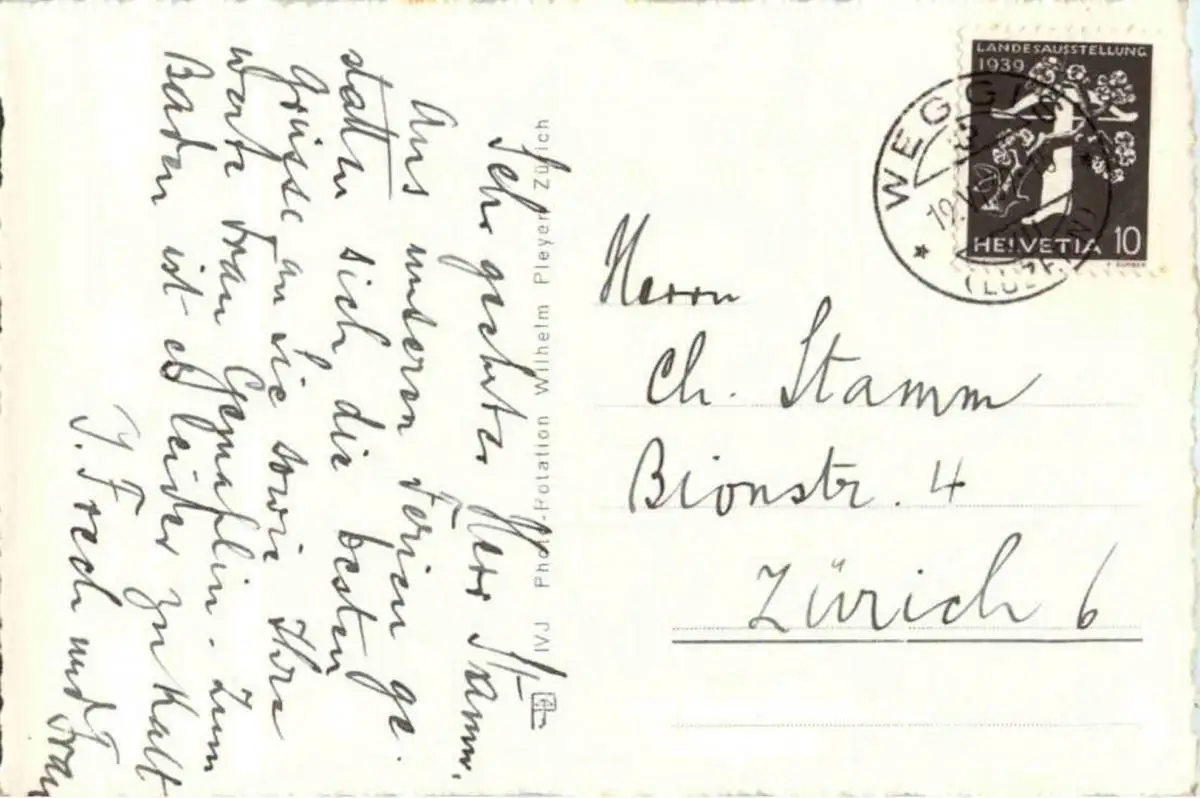 LANDESAUSSTELLUNG
1939
HELVETIA 10
WEGGIS
(LUZERN)
Herrn
Ch. Stamm
Bionstr. 4
Zürich 6
IVJ Photo-Rotation Wilhelm Pleyer Zürich
Sehr geehrter Herr Stamm.
Aus unsern Ferien ge-
statten sich die besten
Grüsse an Sie sowie Ihre
werte Frau Gemahlin. Zum
Baden ist es leider zu kalt
J. Frech und Frau